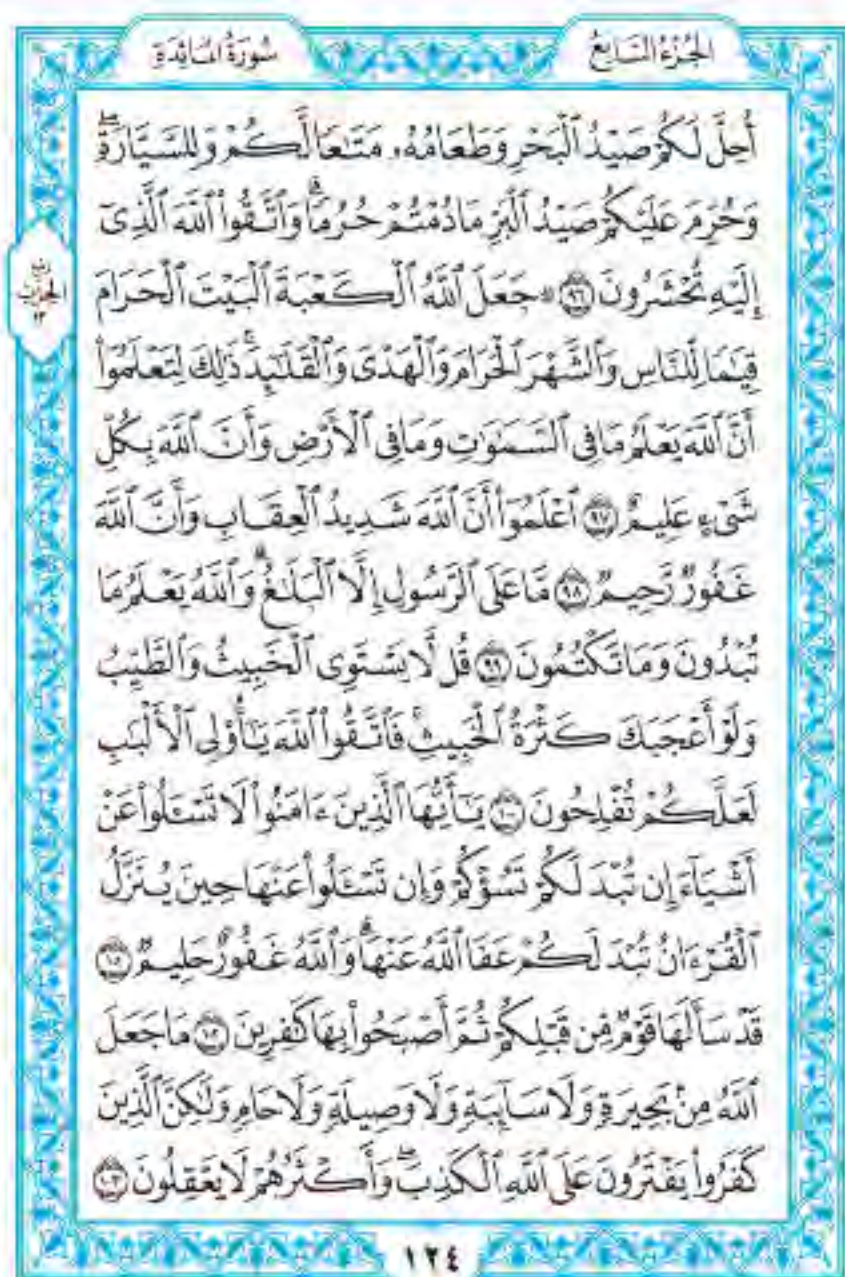 الجزء السابع
سورة المائدة
أُحِلَّ لَكُمْ صَيْدُ ٱلْبَحْرِ وَطَعَامُهُۥ مَتَـٰعًا لَّكُمْ وَلِلسَّيَّارَةِۖ
وَحُرِّمَ عَلَيْكُمْ صَيْدُ ٱلْبَرِّ مَا دُمْتُمْ حُرُمًاۗ وَٱتَّقُوا۟ ٱللَّهَ ٱلَّذِىٓ
إِلَيْهِ تُحْشَرُونَ ٩٦ ۞ جَعَلَ ٱللَّهُ ٱلْكَعْبَةَ ٱلْبَيْتَ ٱلْحَرَامَ
قِيَـٰمًا لِّلنَّاسِ وَٱلشَّهْرَ ٱلْحَرَامَ وَٱلْهَدْىَ وَٱلْقَلَـٰٓئِدَۚ ذَٰلِكَ لِتَعْلَمُوٓا۟
أَنَّ ٱللَّهَ يَعْلَمُ مَا فِى ٱلسَّمَـٰوَٰتِ وَمَا فِى ٱلْأَرْضِ وَأَنَّ ٱللَّهَ بِكُلِّ
شَىْءٍ عَلِيمٌ ٩٧ ٱعْلَمُوٓا۟ أَنَّ ٱللَّهَ شَدِيدُ ٱلْعِقَابِ وَأَنَّ ٱللَّهَ
غَفُورٌ رَّحِيمٌ ٩٨ مَّا عَلَى ٱلرَّسُولِ إِلَّا ٱلْبَلَـٰغُۗ وَٱللَّهُ يَعْلَمُ مَا
تُبْدُونَ وَمَا تَكْتُمُونَ ٩٩ قُل لَّا يَسْتَوِى ٱلْخَبِيثُ وَٱلطَّيِّبُ
وَلَوْ أَعْجَبَكَ كَثْرَةُ ٱلْخَبِيثِۚ فَٱتَّقُوا۟ ٱللَّهَ يَـٰٓأُو۟لِى ٱلْأَلْبَـٰبِ
لَعَلَّكُمْ تُفْلِحُونَ ١٠٠ يَـٰٓأَيُّهَا ٱلَّذِينَ ءَامَنُوا۟ لَا تَسْـَٔلُوا۟ عَنْ
أَشْيَآءَ إِن تُبْدَ لَكُمْ تَسُؤْكُمْ وَإِن تَسْـَٔلُوا۟ عَنْهَا حِينَ يُنَزَّلُ
ٱلْقُرْءَانُ تُبْدَ لَكُمْ عَفَا ٱللَّهُ عَنْهَاۗ وَٱللَّهُ غَفُورٌ حَلِيمٌ ١٠١
قَدْ سَأَلَهَا قَوْمٌ مِّن قَبْلِكُمْ ثُمَّ أَصْبَحُوا۟ بِهَا كَـٰفِرِينَ ١٠٢ مَا جَعَلَ
ٱللَّهُ مِنۢ بَحِيرَةٍ وَلَا سَآئِبَةٍ وَلَا وَصِيلَةٍ وَلَا حَامٍ وَلَـٰكِنَّ ٱلَّذِينَ
كَفَرُوا۟ يَفْتَرُونَ عَلَى ٱللَّهِ ٱلْكَذِبَۖ وَأَكْثَرُهُمْ لَا يَعْقِلُونَ ١٠٣
١٢٤